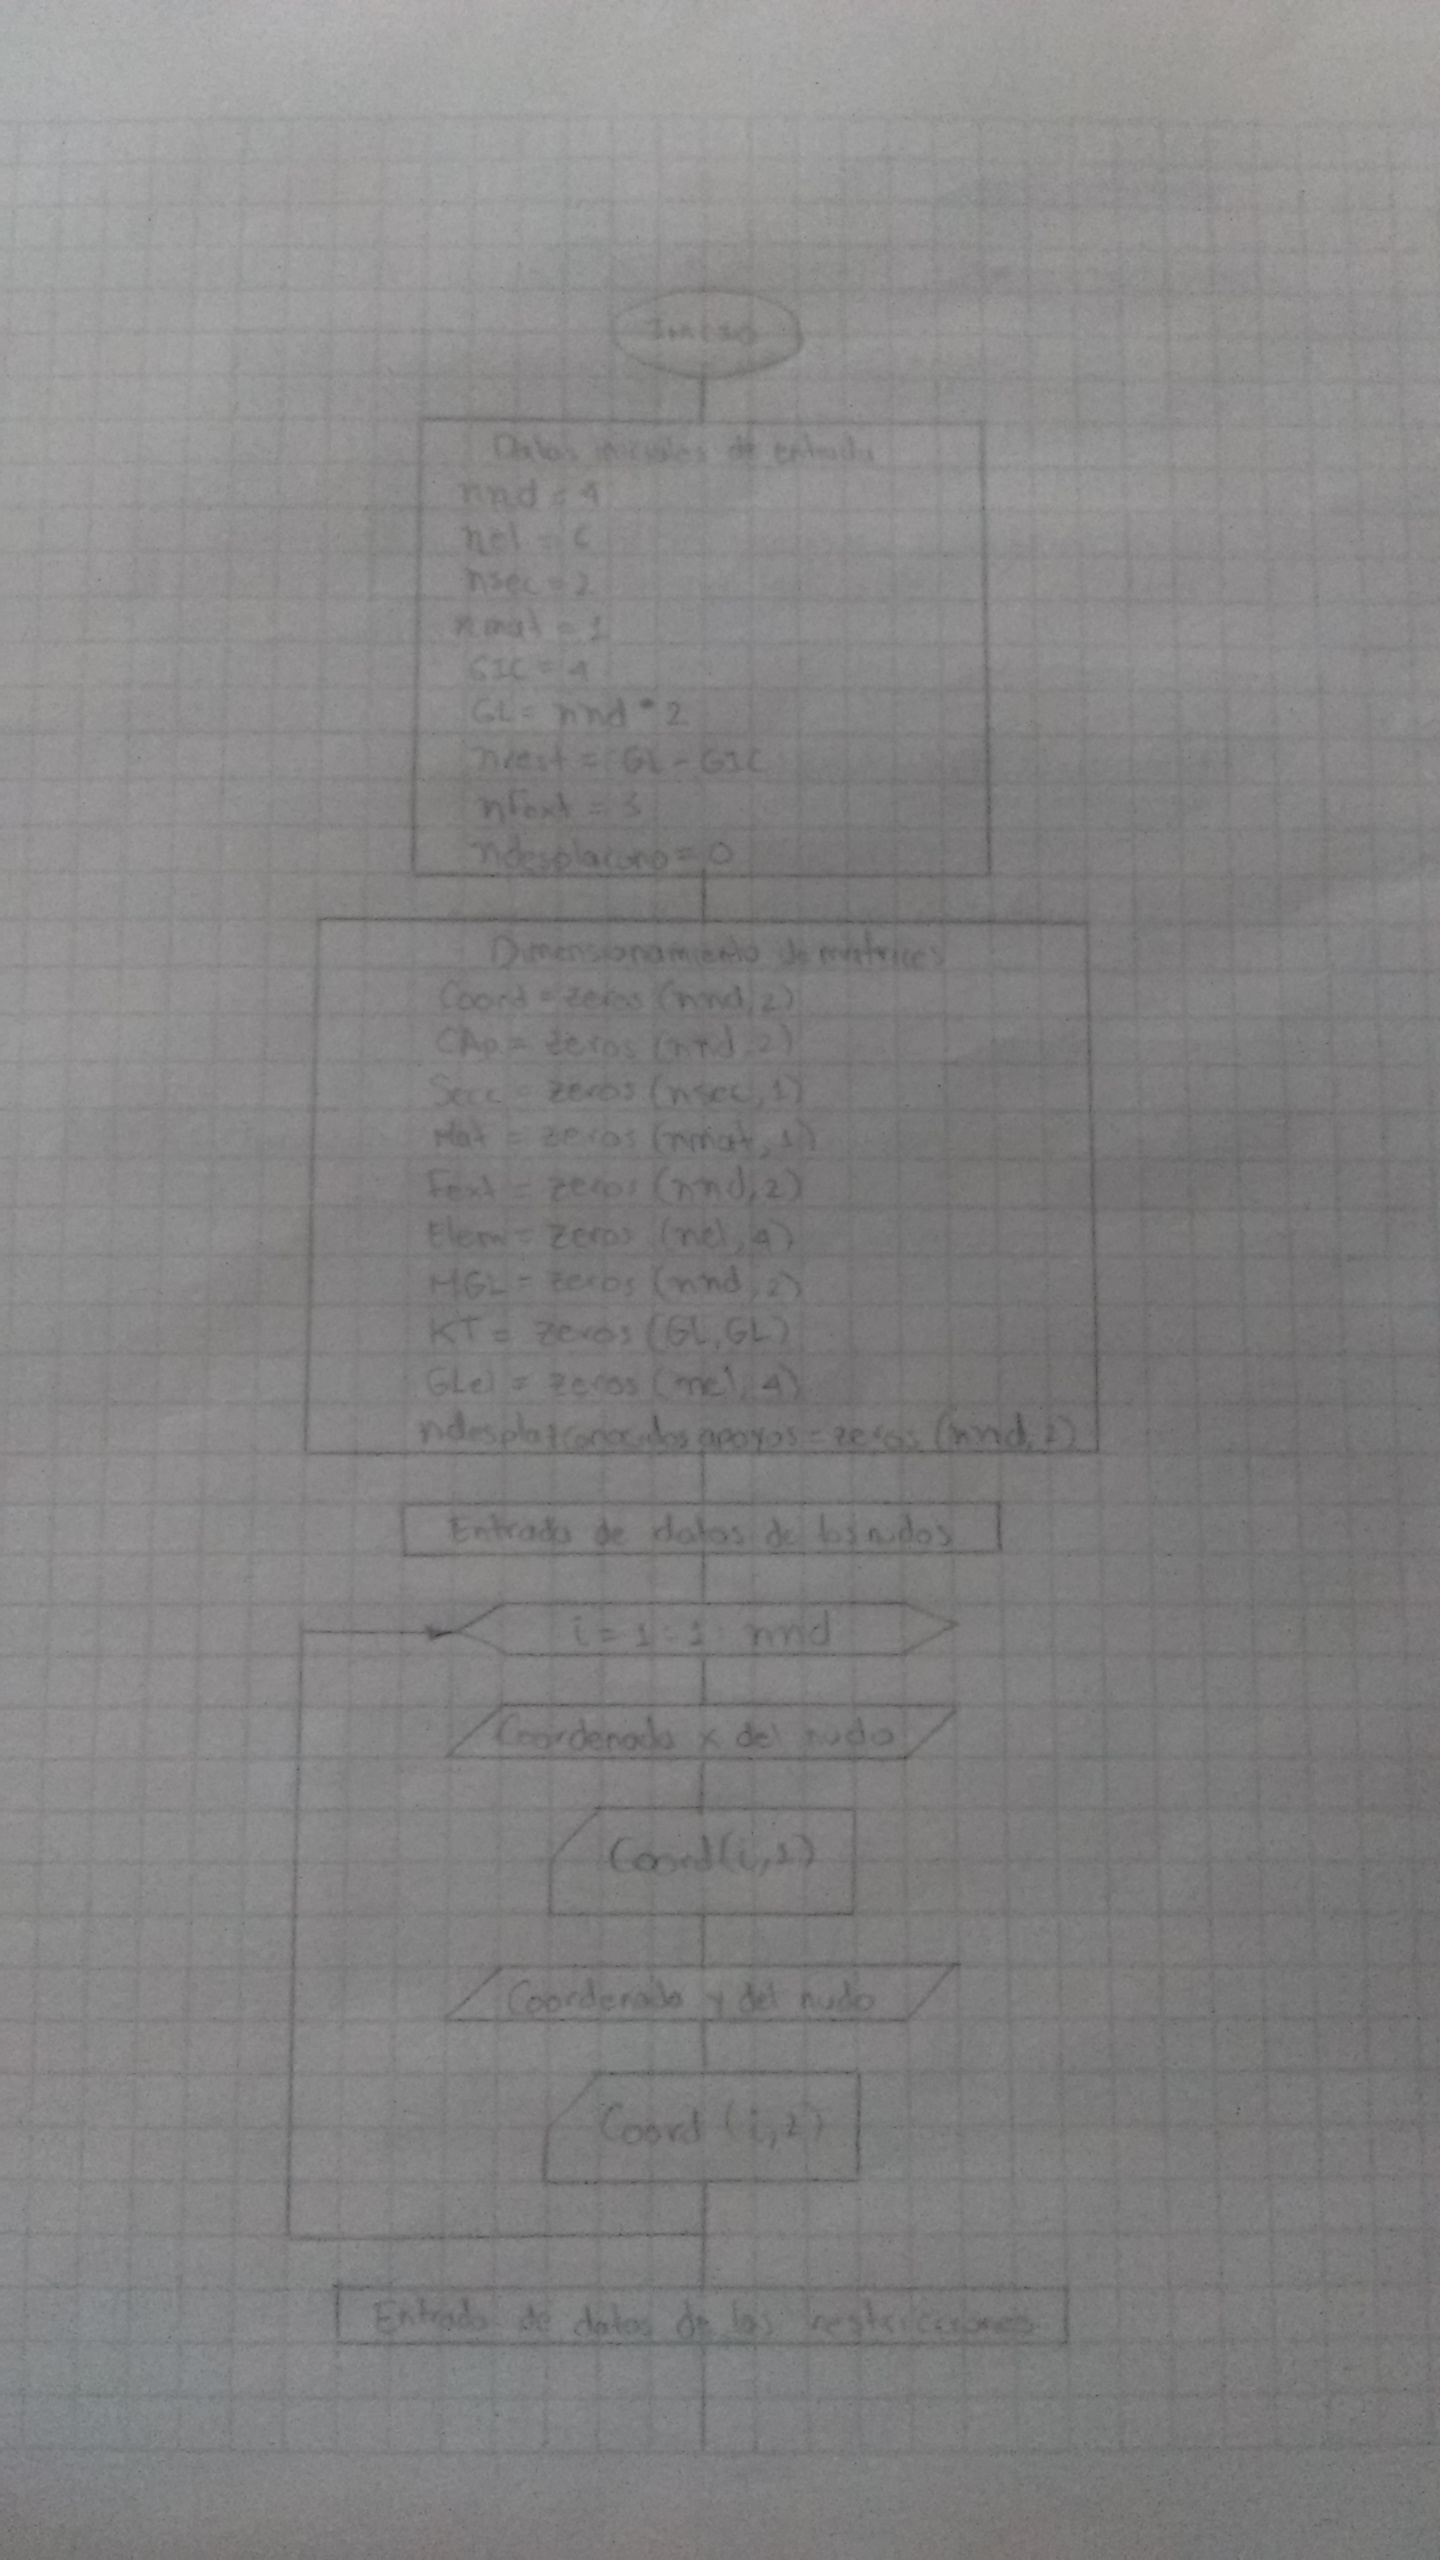 Inicio
Datos iniciales de entrada
nnd = 4
nel = 6
nsec = 2
nmat = 1
GIC = 4
GL = nnd * 2
nrest = GL - GIC
nFext = 3
ndesplacono = 0
Dimensionamiento de matrices
Coord = zeros (nnd, 2)
CAp = zeros (nnd, 2)
Secc = zeros (nsec, 1)
Mat = zeros (nmat, 1)
Fext = zeros (nnd, 2)
Elem = zeros (nel, 4)
MGL = zeros (nnd, 2)
KT = zeros (GL, GL)
GLel = zeros (nel, 4)
ndesplazconocidosapoyos = zeros (nnd, 2)
Entrada de datos de los nudos
i = 1 : 1 : nnd
Coordenada x del nudo
Coord (i, 1)
Coordenada y del nudo
Coord (i, 2)
Entrada de datos de las restricciones